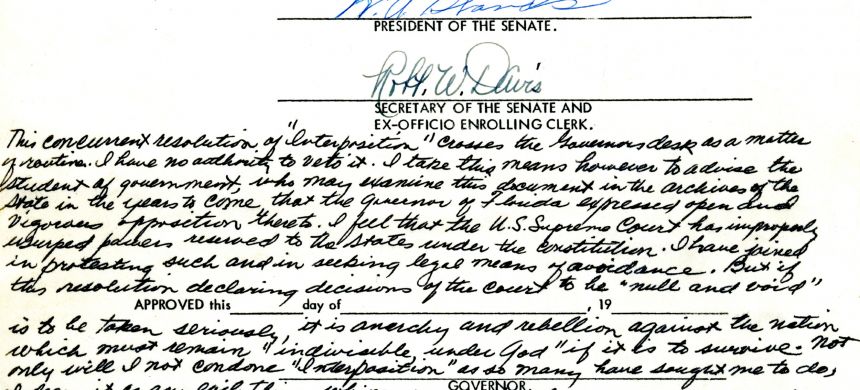 W. A. Shands
PRESIDENT OF THE SENATE.
Robt. W. Davis
SECRETARY OF THE SENATE AND
EX-OFFICIO ENROLLING CLERK.
This concurrent resolution of "Interposition" crosses the Governors desk as a matter
of routine. I have no authority to veto it. I take this means however to advise the
student of government, who may examine this document in the archives of the
state in the years to come that the Governor of Florida expressed open and
vigorous opposition thereto. I feel that the U.S. Supreme Court has improperly
usurped powers reserved to the states under the constitution. I have joined
in protesting such and in seeking legal means of avoidance. But if
this resolution declaring decisions of the court to be "null and void"
APPROVED this day of , 19
is to be taken seriously, it is anarchy and rebellion against the nation
which must remain "indivisible, under God" if it is to survive. Not
only will I not condone "Interposition" as so many have sought me to do,
GOVERNOR.